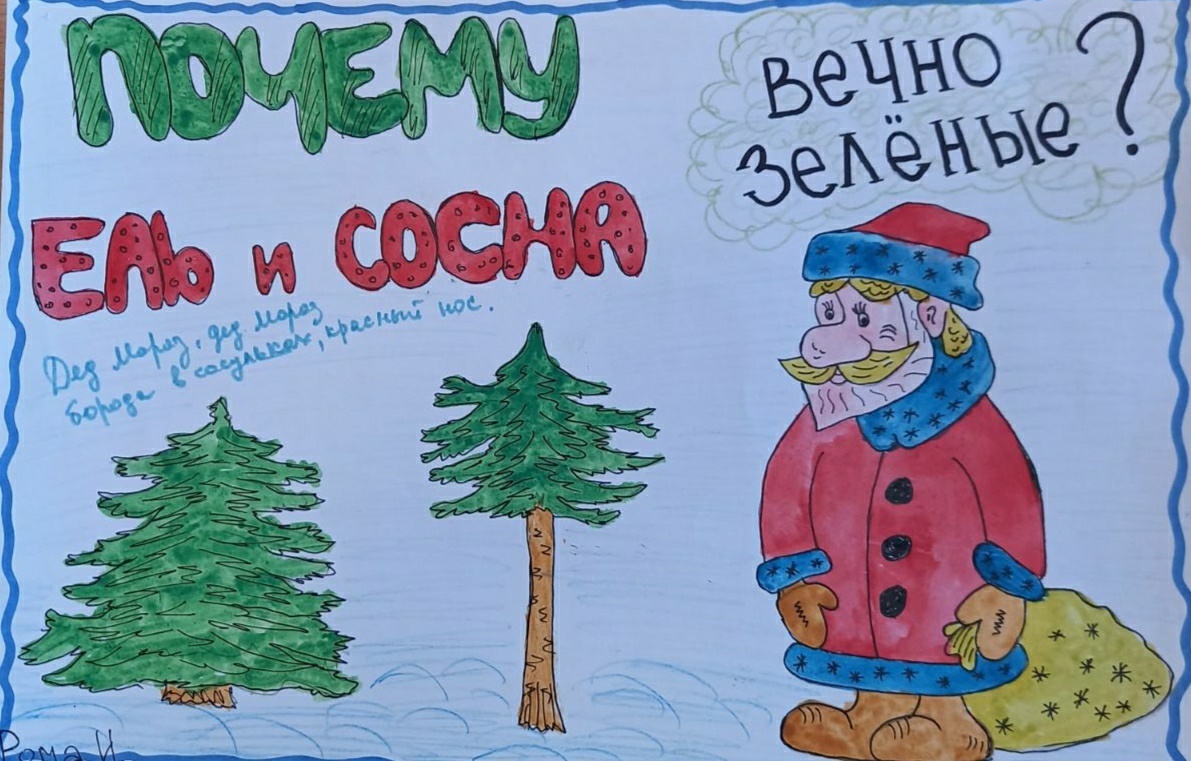 ПОЧЕМУ
ЕЛЬ и СОСНА
вечно
зелёные?
Дед Мороз, дед Мороз
борода в сосульках, красный нос.
Рома И.